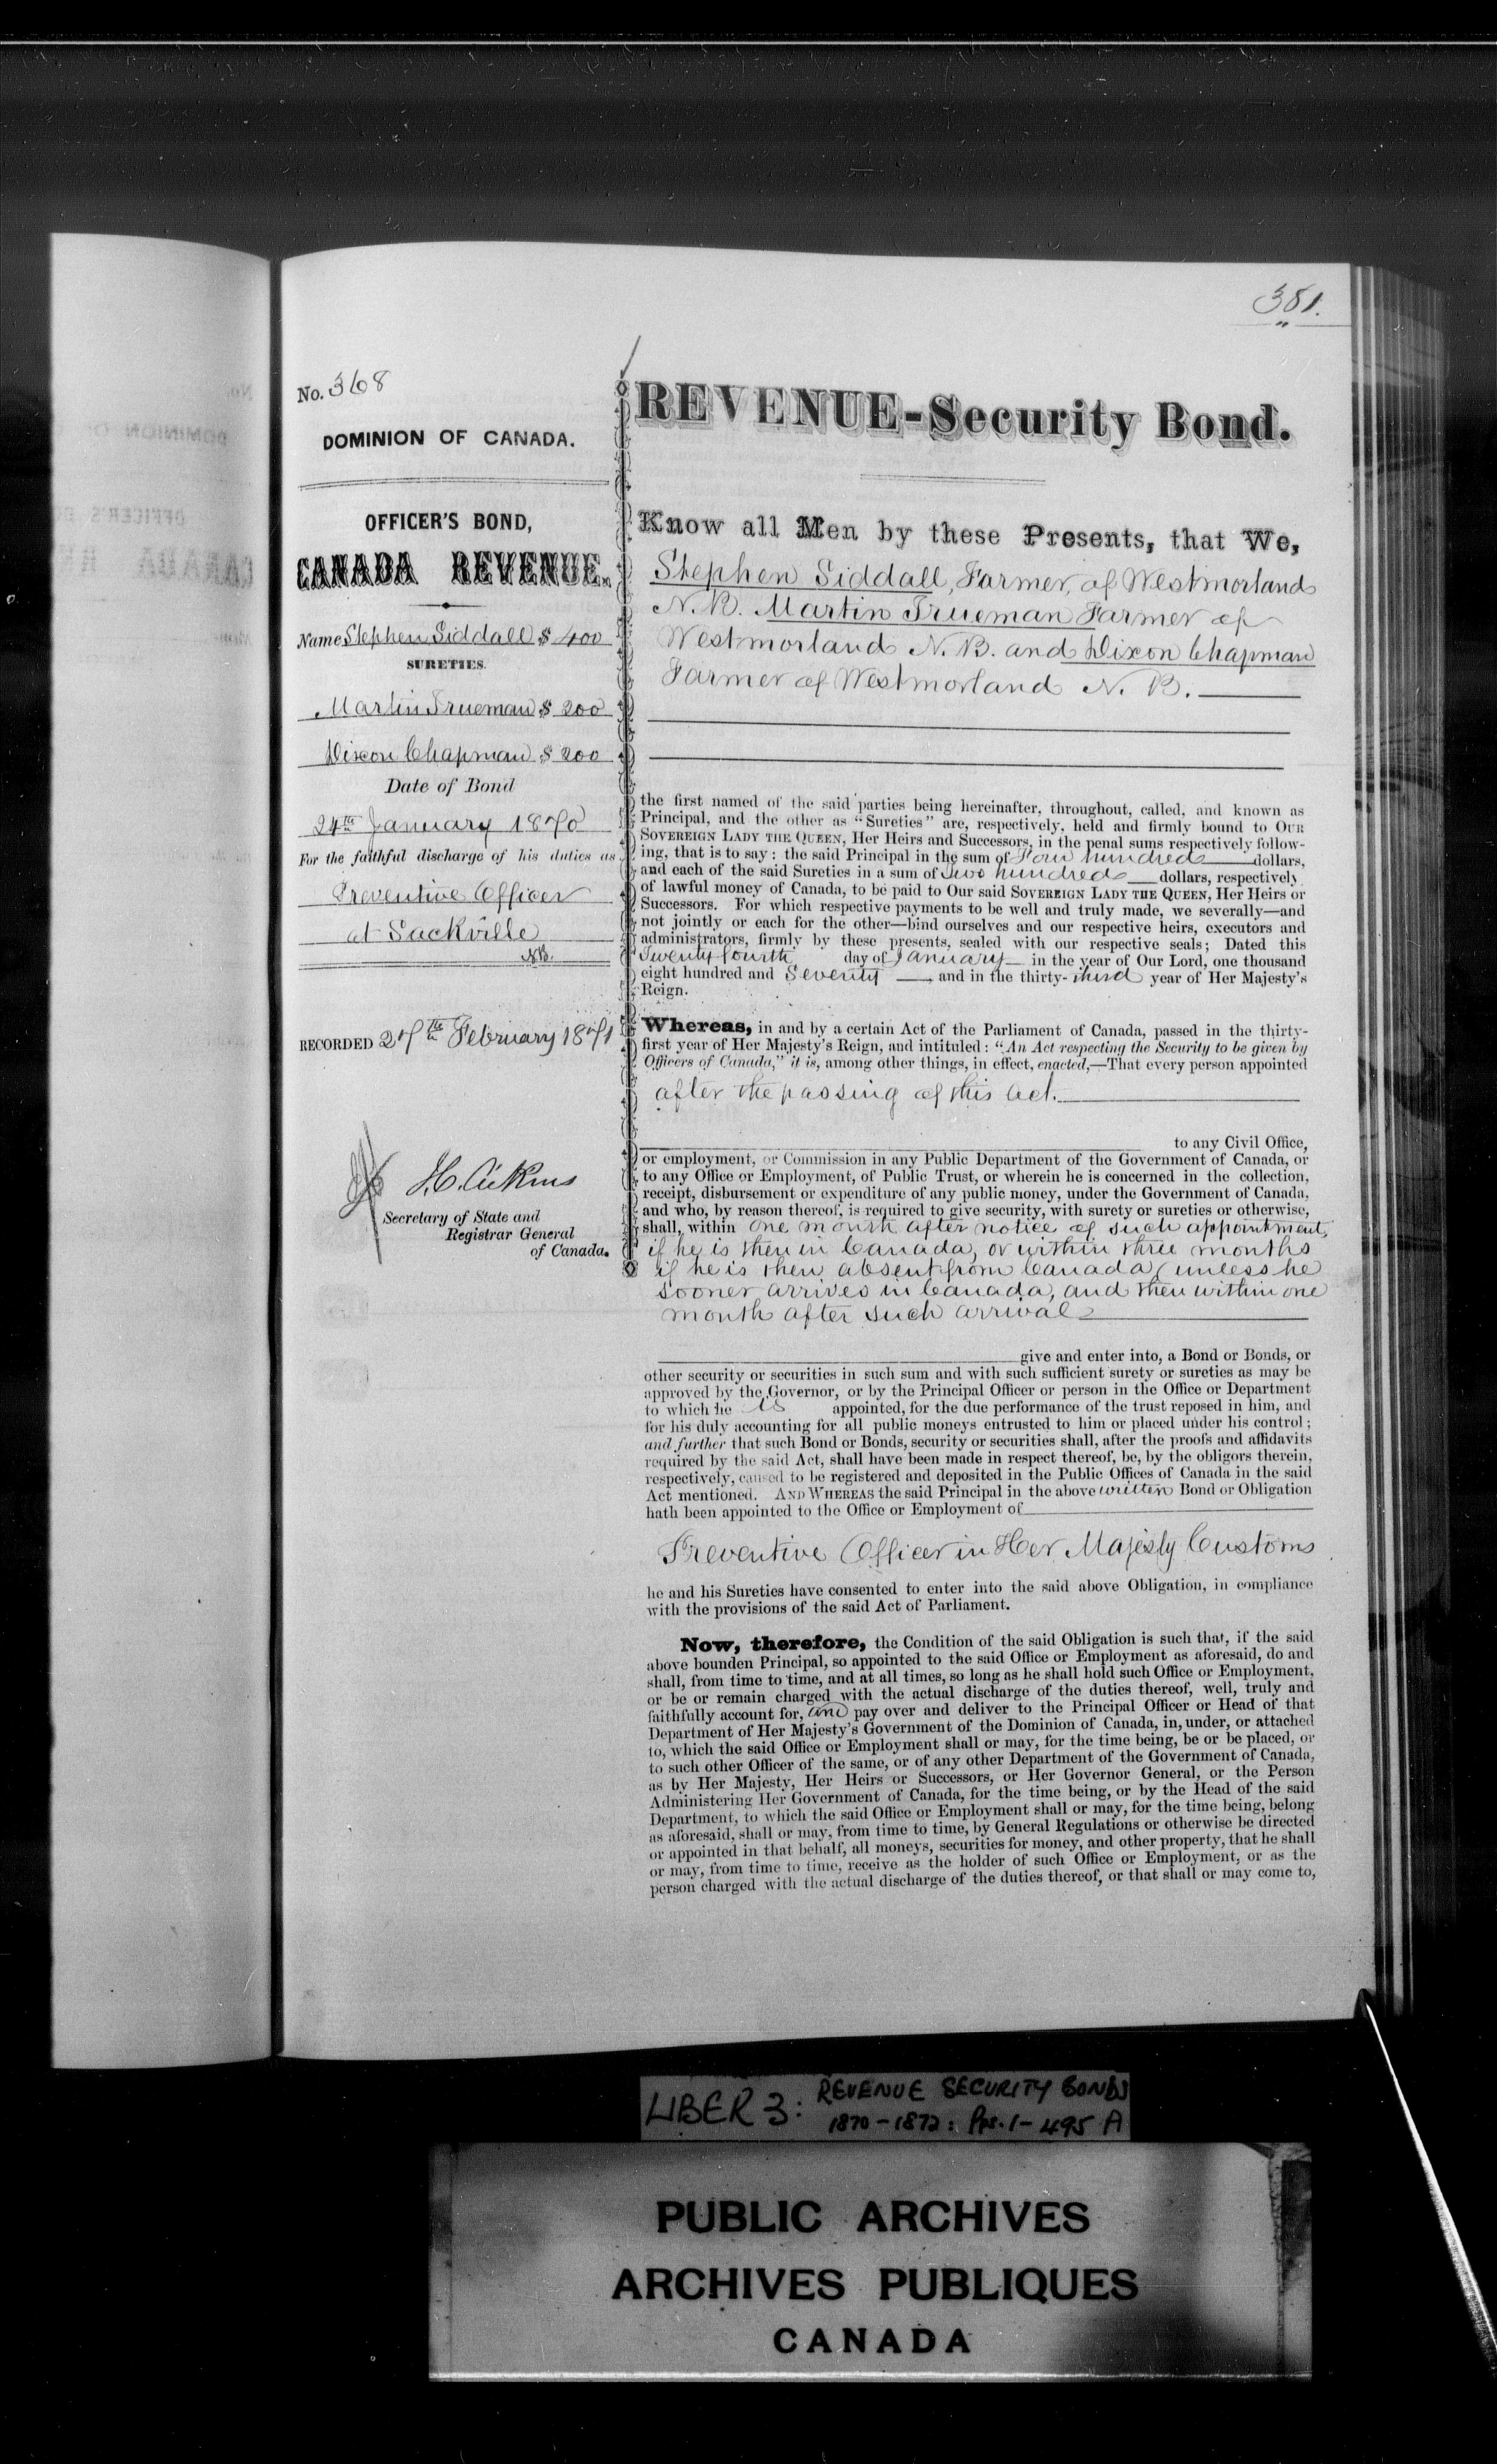 381.
No. 368
DOMINION OF CANADA.
OFFICER'S BOND,
CANADA REVENUE.
Name Stephen Siddall $ 400
SURETIES.
Martin Trueman $ 200
Dixon Chapman $ 200
Date of Bond
24th January 1870
For the faithful discharge of his duties as
Preventive Officer
at Sackville
N.B.
RECORDED 27th February 1871
J.C. Aikins
Secretary of State and
Registrar General
of Canada.
REVENUE-Security Bond.
Know all Men by these Presents, that We,
Stephen Siddall, Farmer, of Westmorland
N.B. Martin Trueman Farmer of
Westmorland N.B. and Dixon Chapman
Farmer of Westmorland N.B.
the first named of the said parties being hereinafter, throughout, called, and known as
Principal, and the other as "Sureties" are, respectively, held and firmly bound to OUR
SOVEREIGN LADY THE QUEEN, Her Heirs and Successors, in the penal sums respectively follow-
ing, that is to say: the said Principal in the sum of Four hundred dollars,
and each of the said Sureties in a sum of Two hundred dollars, respectively
of lawful money of Canada, to be paid to Our said SOVEREIGN LADY THE QUEEN, Her Heirs or
Successors. For which respective payments to be well and truly made, we severally—and
not jointly or each for the other—bind ourselves and our respective heirs, executors and
administrators, firmly by these presents, sealed with our respective seals; Dated this
Twenty fourth day of January in the year of Our Lord, one thousand
eight hundred and Seventy and in the thirty-third year of Her Majesty's
Reign.
Whereas, in and by a certain Act of the Parliament of Canada, passed in the thirty-
first year of Her Majesty's Reign, and intituled: "An Act respecting the Security to be given by
Officers of Canada," it is, among other things, in effect, enacted,—That every person appointed
after the passing of this Act.
to any Civil Office,
or employment, or Commission in any Public Department of the Government of Canada, or
to any Office or Employment, of Public Trust, or wherein he is concerned in the collection,
receipt, disbursement or expenditure of any public money, under the Government of Canada,
and who, by reason thereof, is required to give security, with surety or sureties or otherwise,
shall, within one month after notice of such appointment,
if he is then in Canada, or within three months
if he is then absent from Canada (unless he
sooner arrives in Canada, and then within one
month after such arrival
give and enter into, a Bond or Bonds, or
other security or securities in such sum and with such sufficient surety or sureties as may be
approved by the Governor, or by the Principal Officer or person in the Office or Department
to which he is appointed, for the due performance of the trust reposed in him, and
for his duly accounting for all public moneys entrusted to him or placed under his control;
and further that such Bond or Bonds, security or securities shall, after the proofs and affidavits
required by the said Act, shall have been made in respect thereof, be, by the obligors therein,
respectively, caused to be registered and deposited in the Public Offices of Canada in the said
Act mentioned. AND WHEREAS the said Principal in the above written Bond or Obligation
hath been appointed to the Office or Employment of
Preventive Officer in Her Majesty Customs
he and his Sureties have consented to enter into the said above Obligation, in compliance
with the provisions of the said Act of Parliament.
Now, therefore, the Condition of the said Obligation is such that, if the said
above bounden Principal, so appointed to the said Office or Employment as aforesaid, do and
shall, from time to time, and at all times, so long as he shall hold such Office or Employment,
or be or remain charged with the actual discharge of the duties thereof, well, truly and
faithfully account for, and pay over and deliver to the Principal Officer or Head of that
Department of Her Majesty's Government of the Dominion of Canada, in, under, or attached
to, which the said Office or Employment shall or may, for the time being, be or be placed, or
to such other Officer of the same, or of any other Department of the Government of Canada,
as by Her Majesty, Her Heirs or Successors, or Her Governor General, or the Person
Administering Her Government of Canada, for the time being, or by the Head of the said
Department, to which the said Office or Employment shall or may, for the time being, belong
as aforesaid, shall or may, from time to time, by General Regulations or otherwise be directed
or appointed in that behalf, all moneys, securities for money, and other property, that he shall
or may, from time to time, receive as the holder of such Office or Employment, or as the
person charged with the actual discharge of the duties thereof, or that shall or may come to,
LIBER 3: REVENUE SECURITY BONDS
1870-1872: Pps. 1-495 A
PUBLIC ARCHIVES
ARCHIVES PUBLIQUES
CANADA